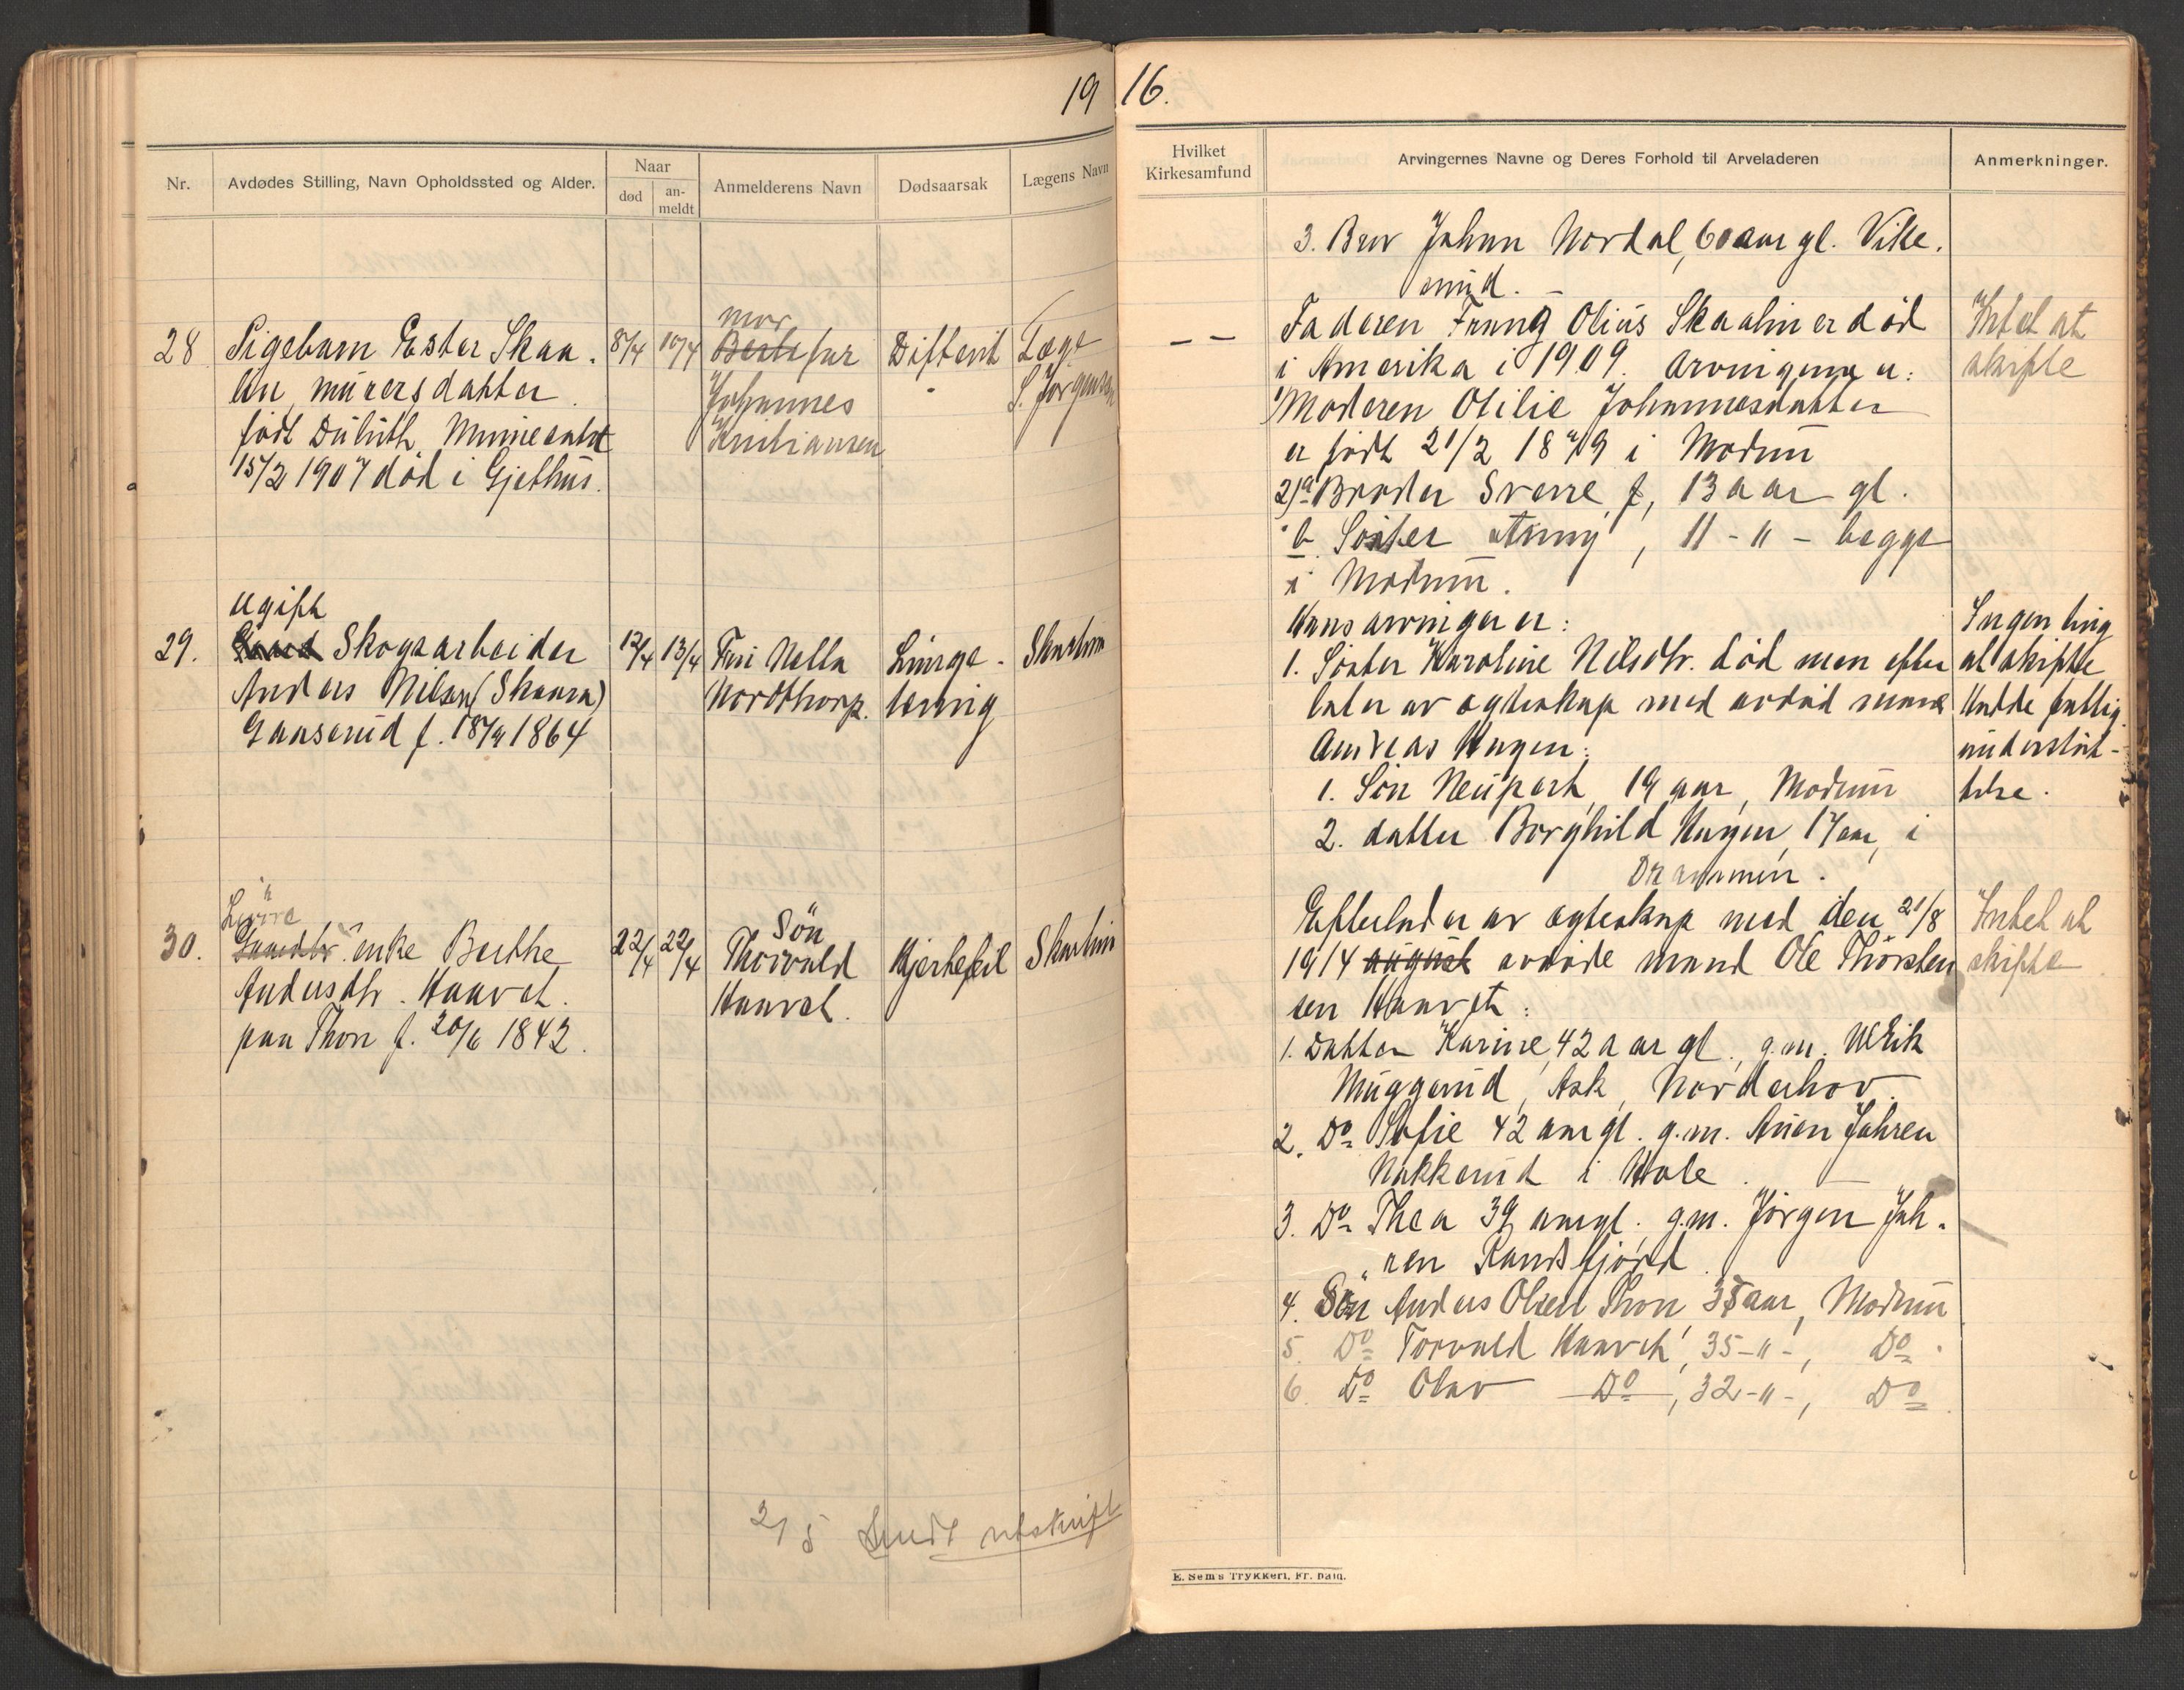 19
Nr.
Avdødes Stilling, Navn Opholdssted og Alder.
Naar
død
an-
meldt
Anmelderens Navn
Dødsaarsak
Lægens Navn
28
Pigebarn Ester Skaa-
lin, murersdatter.
født Duluth,
15/2 1907 död i Gjethus.
8/4
10/4
mor
far
Johannes
Kristiansen
Difterit
Læge
S. Jörgensen
29.
ugift
Skogsarbeider
Anders Nilsen (Skaara)
Gaaserud f. 18/4 1864
12/4
13/4
Nella
Nordthorp.
Lunge-
Skaalin
30.
enke Berthe
Andersdtr. Haavet.
paa Thon f. 20/6 1842.
22/4
22/4
Sön
Thorvald
Haavet.
Hjertefeil
Skaalin
2/5 Sendt utskrift
16.
Hvilket
Kirkesamfund
Arvingernes Navne og Deres Forhold til Arveladeren
Anmerkninger.
3. Bror Johan Nordal, 60 aar gl. Vike-
rud.
— —
Faderen Olius Skaalin er död
i Amerika i 1909. Arvingerne er:
Moderen Otilie Johannesdatter
er födt 21/2 1879 i Modum
2) a Broder Sverre f, 13 aar gl.
b. Söster Anny, 11 - " - begge
i Modum.
Intet at
skifte
Hans arvinger er:
1. Söster Karoline Nilsdtr. död men efter
later av egteskap med avdöd mand
Andreas Haugen:
1. Sön Neupert, 19 aar, Modum
2. datter Borghild Haugen, 17 aar, i
Drammen.
Ingen ting
at skifte
Hadde fattig-
understöt-
telse.
Efterlader av egteskap med den 21/8
1914 august avdöde mand Ole Thorsten
sen Haavet:
1. Datter Karine, 42 aar gl., g.m. Ulrik
Muggerud, Ask, Norderhov.
2. Do Sofie 42 aar gl. g.m. Anon Jahren
Nakkerud i Hole.
3. Do Thea 39 aar gl. g.m. Jörgen Jah-
ren Randsfjord.
4. Sön Anders Olsen Thon, 35 aar, Modum
5. Do Torvald Haavet, 35 - " -, Do.
6. Do Olav Do, 32 - " -, Do.
Intet at
skifte.
E. Sems Trykkeri, Fr.hald.